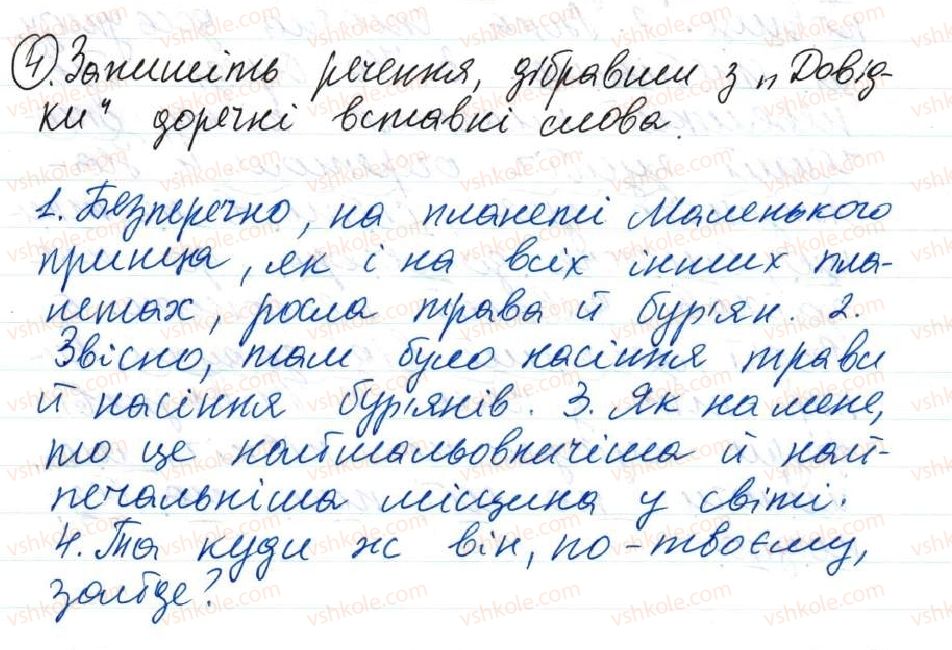 4. Запишіть речення, дібравши з „Довід-
ки" доречні вставні слова.
1. Безперечно, на планеті Маленького
принца, як і на всіх інших пла-
нетах, росла трава й бур'ян. 2.
Звісно, там було насіння трави
й насіння бур'янів. 3. Як на мене,
то це наймальовничіша й най-
печальніша місцина у світі.
4. Та куди ж він, по-твоєму,
зайде?